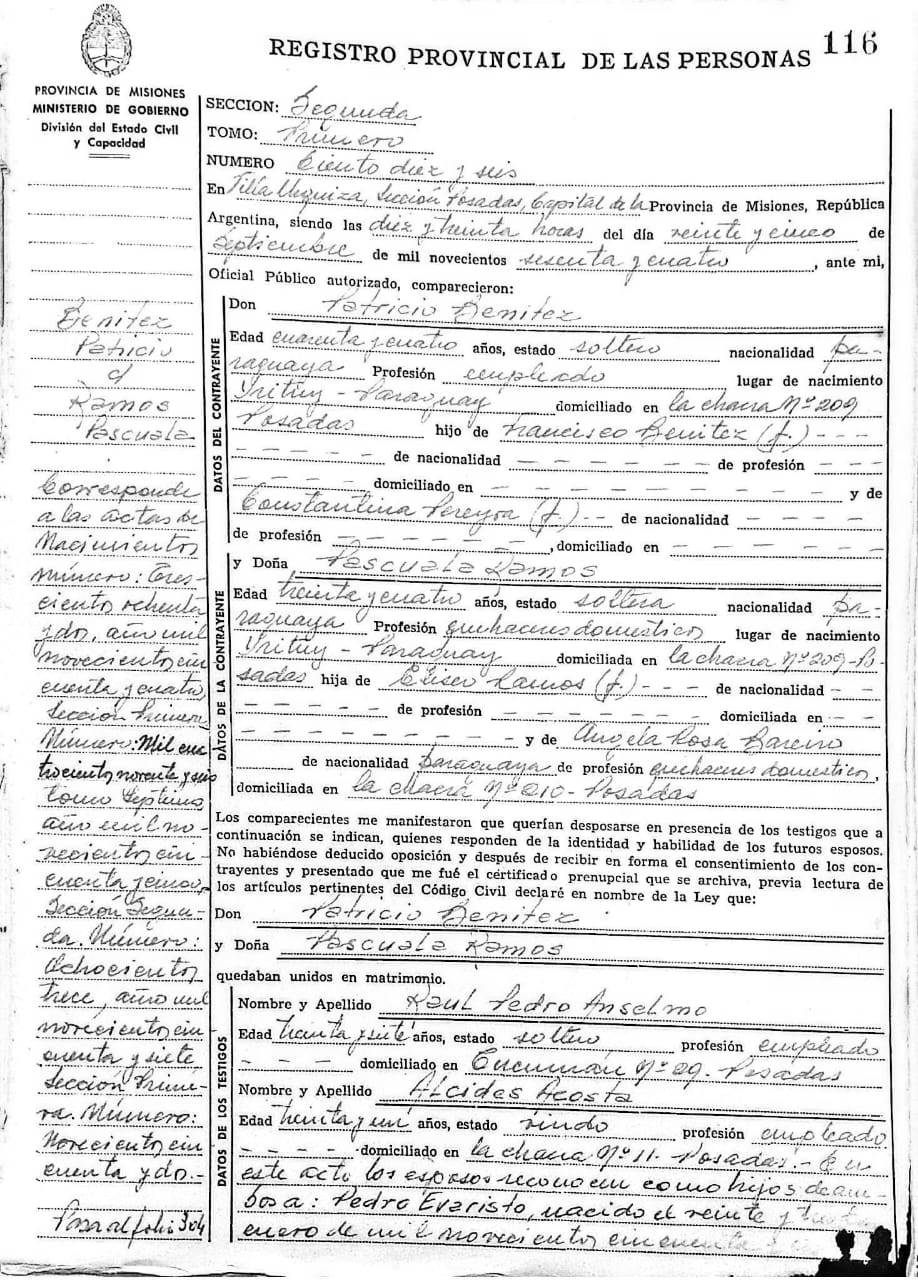 REGISTRO PROVINCIAL DE LAS PERSONAS 116
PROVINCIA DE MISIONES
MINISTERIO DE GOBIERNO
División del Estado Civil
y Capacidad
Benitez
Patricio
c/
Ramos
Pascuala
Corresponde
a las actas de
Nacimientos
número: Tres-
ciento ochenta
y dos, año mil
novecientos cin
cuenta y cuatro
Sección Primera
Número: Mil cua
trociento noventa y seis
tomo Séptimo
año mil no-
veciento cin-
cuenta y cinco,
Sección Segun-
da. Número:
Ochociento
trece, año mil
noveciento cin
cuenta y siete
Sección Prime-
ra. Número:
Noveciento cin
cuenta y do.-
Pasa al folio 304
SECCION: Segunda
TOMO: Primero
NUMERO Ciento diez y seis
En Villa Urquiza, Sección Posadas, Capital de la Provincia de Misiones, República
Argentina, siendo las diez y treinta horas del día veinte y cinco de
Septiembre de mil novecientos sesenta y cuatro, ante mi,
Oficial Público autorizado, comparecieron:
DATOS DEL CONTRAYENTE
Don Patricio Benitez
Edad cuarenta y cuatro años, estado soltero nacionalidad pa-
raguaya Profesión empleado lugar de nacimiento
- Paraguay domiciliado en la chacra Nº 209
Posadas hijo de Francisco Benitez (f.) - - -
- - - - - de nacionalidad - - - - - - de profesión - - -
- - - - domiciliado en - - - - - - - - - y de
Constantina Pereyra (f.) - - de nacionalidad - - - - -
de profesión - - - - - - -, domiciliado en - - - - - - -
DATOS DE LA CONTRAYENTE
y Doña Pascuala Ramos
Edad treinta y cuatro años, estado soltera nacionalidad pa-
raguaya Profesión quehaceres domestico lugar de nacimiento
- Paraguay domiciliada en la chacra Nº 209-Po-
sadas hija de Eliseo Ramos (f.) - - - de nacionalidad - -
- - - - - de profesión - - - - - - domiciliada en - -
- - - - - - - - - y de Angela Rosa Bareiro
de nacionalidad Paraguaya de profesión quehaceres domestico,
domiciliada en la chacra Nº 210 - Posadas
Los comparecientes me manifestaron que querían desposarse en presencia de los testigos que a
continuación se indican, quienes responden de la identidad y habilidad de los futuros esposos.
No habiéndose deducido oposición y después de recibir en forma el consentimiento de los con-
trayentes y presentado que me fué el certificado prenupcial que se archiva, previa lectura de
los artículos pertinentes del Código Civil declaré en nombre de la Ley que:
Don Patricio Benitez
y Doña Pascuala Ramos
quedaban unidos en matrimonio.
DATOS DE LOS TESTIGOS
Nombre y Apellido Raul Pedro Anselmo
Edad treinta y siete años, estado soltero profesión empleado
- - - - domiciliado en Tucumán Nº 29. Posadas
Nombre y Apellido Alcides Acosta
Edad treinta y un años, estado viudo profesión empleado
- - - - domiciliado en la chacra Nº 11. Posadas.- En
este acto los esposos reconocen como hijos de am-
bos a: Pedro Evaristo, nacido el veinte y
enero de mil novecientos cincuenta